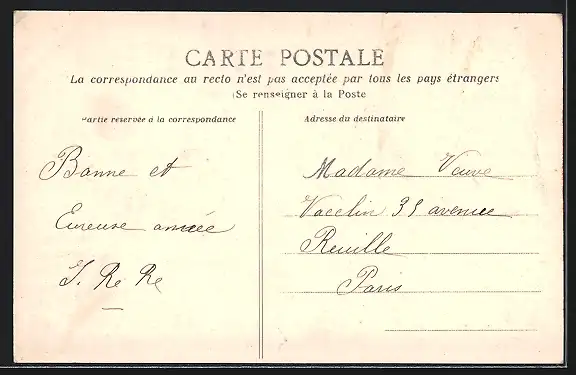 CARTE POSTALE
La correspondance au recto n'est pas acceptée par tous les pays étrangers
(Se renseigner à la Poste
Partie réservée à la correspondance
Bonne et
Eureuse année
J. Re Re
Adresse du destinataire
Madame Veuve
Vacelin 35 avenue
Reuille
Paris